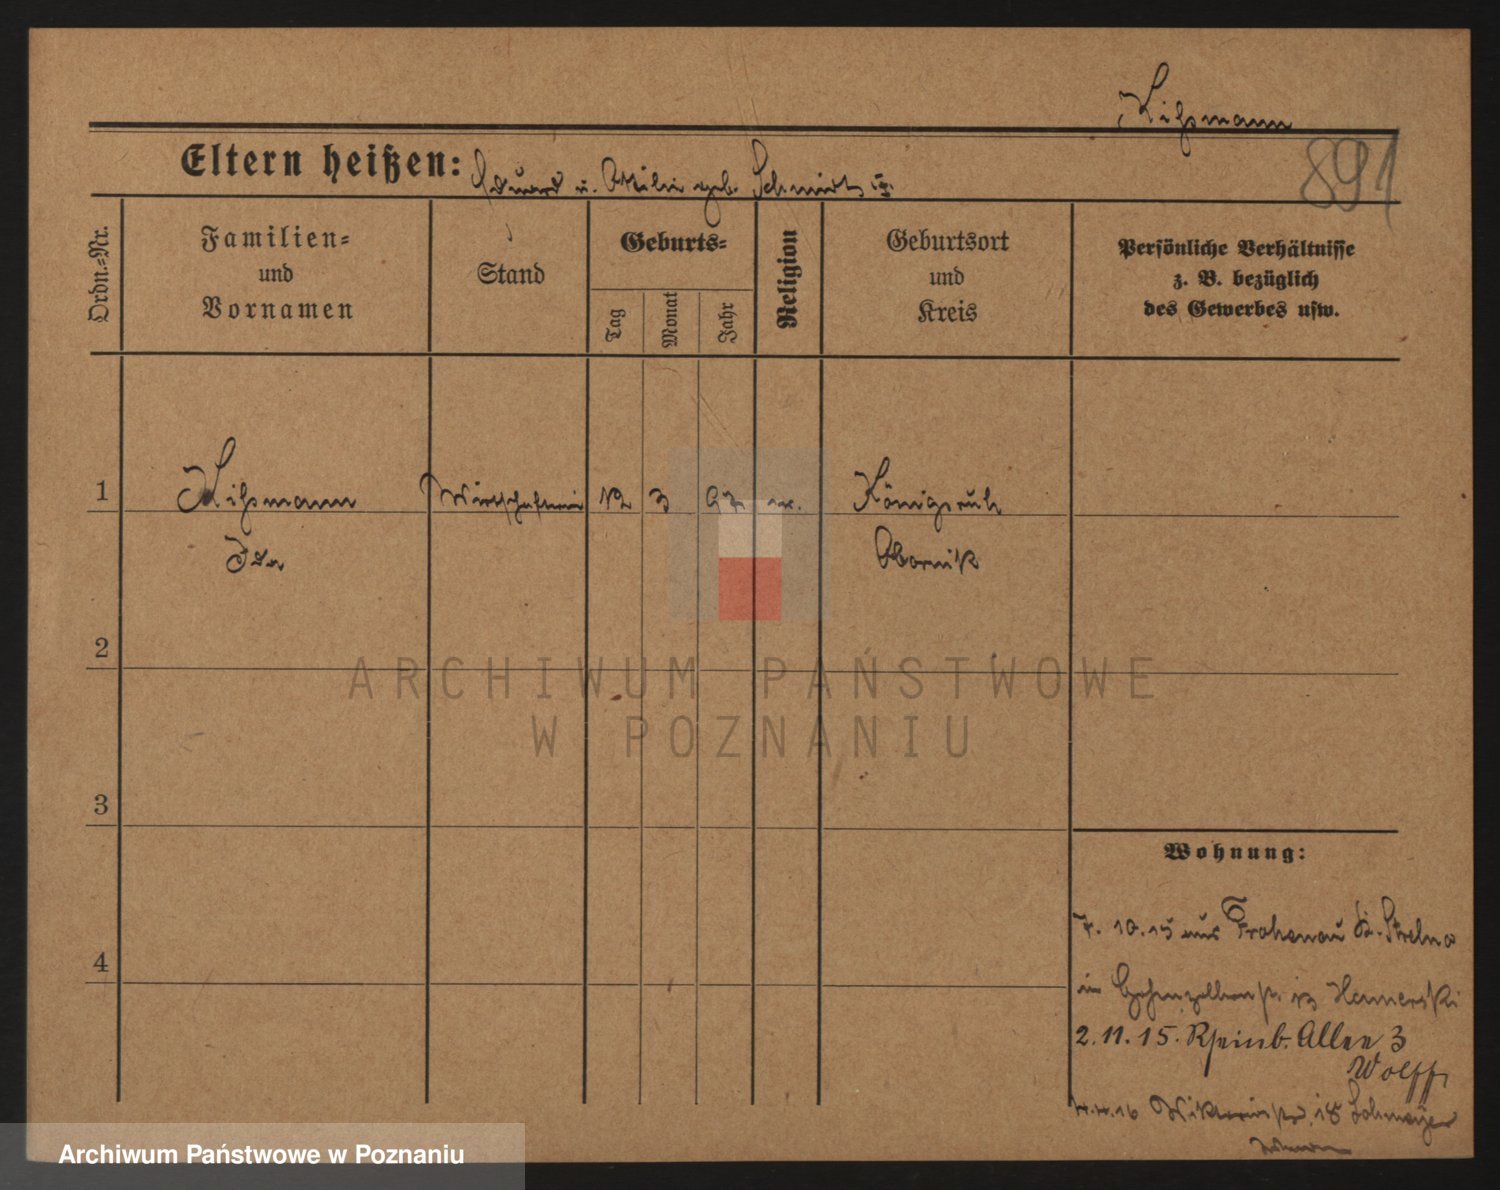 Lißmann
891
Eltern heißen: Eduard u. Ottilie geb. Schmidt
Ordn.=Nr.
Familien=
und
Vornamen
Stand
Geburts=
Tag
Monat
Jahr
Religion
Geburtsort
und
Kreis
Persönliche Verhältnisse
z. B. bezüglich
des Gewerbes usw.
1 Lißmann Wirtschafterin 12 3 93 ev. Königsruh
Ida Obornik
2
3
4
Wohnung:
7. 10. 15 aus Frohenau Kr. Strelno
in Hohenzollernstr. Hemerski
2. 11. 15. Rheinb. Allee 3
Wolff
16 Viktoriastr. 18 Lohmeyer
ARCHIWUM PAŃSTWOWE
W POZNANIU
Archiwum Państwowe w Poznaniu